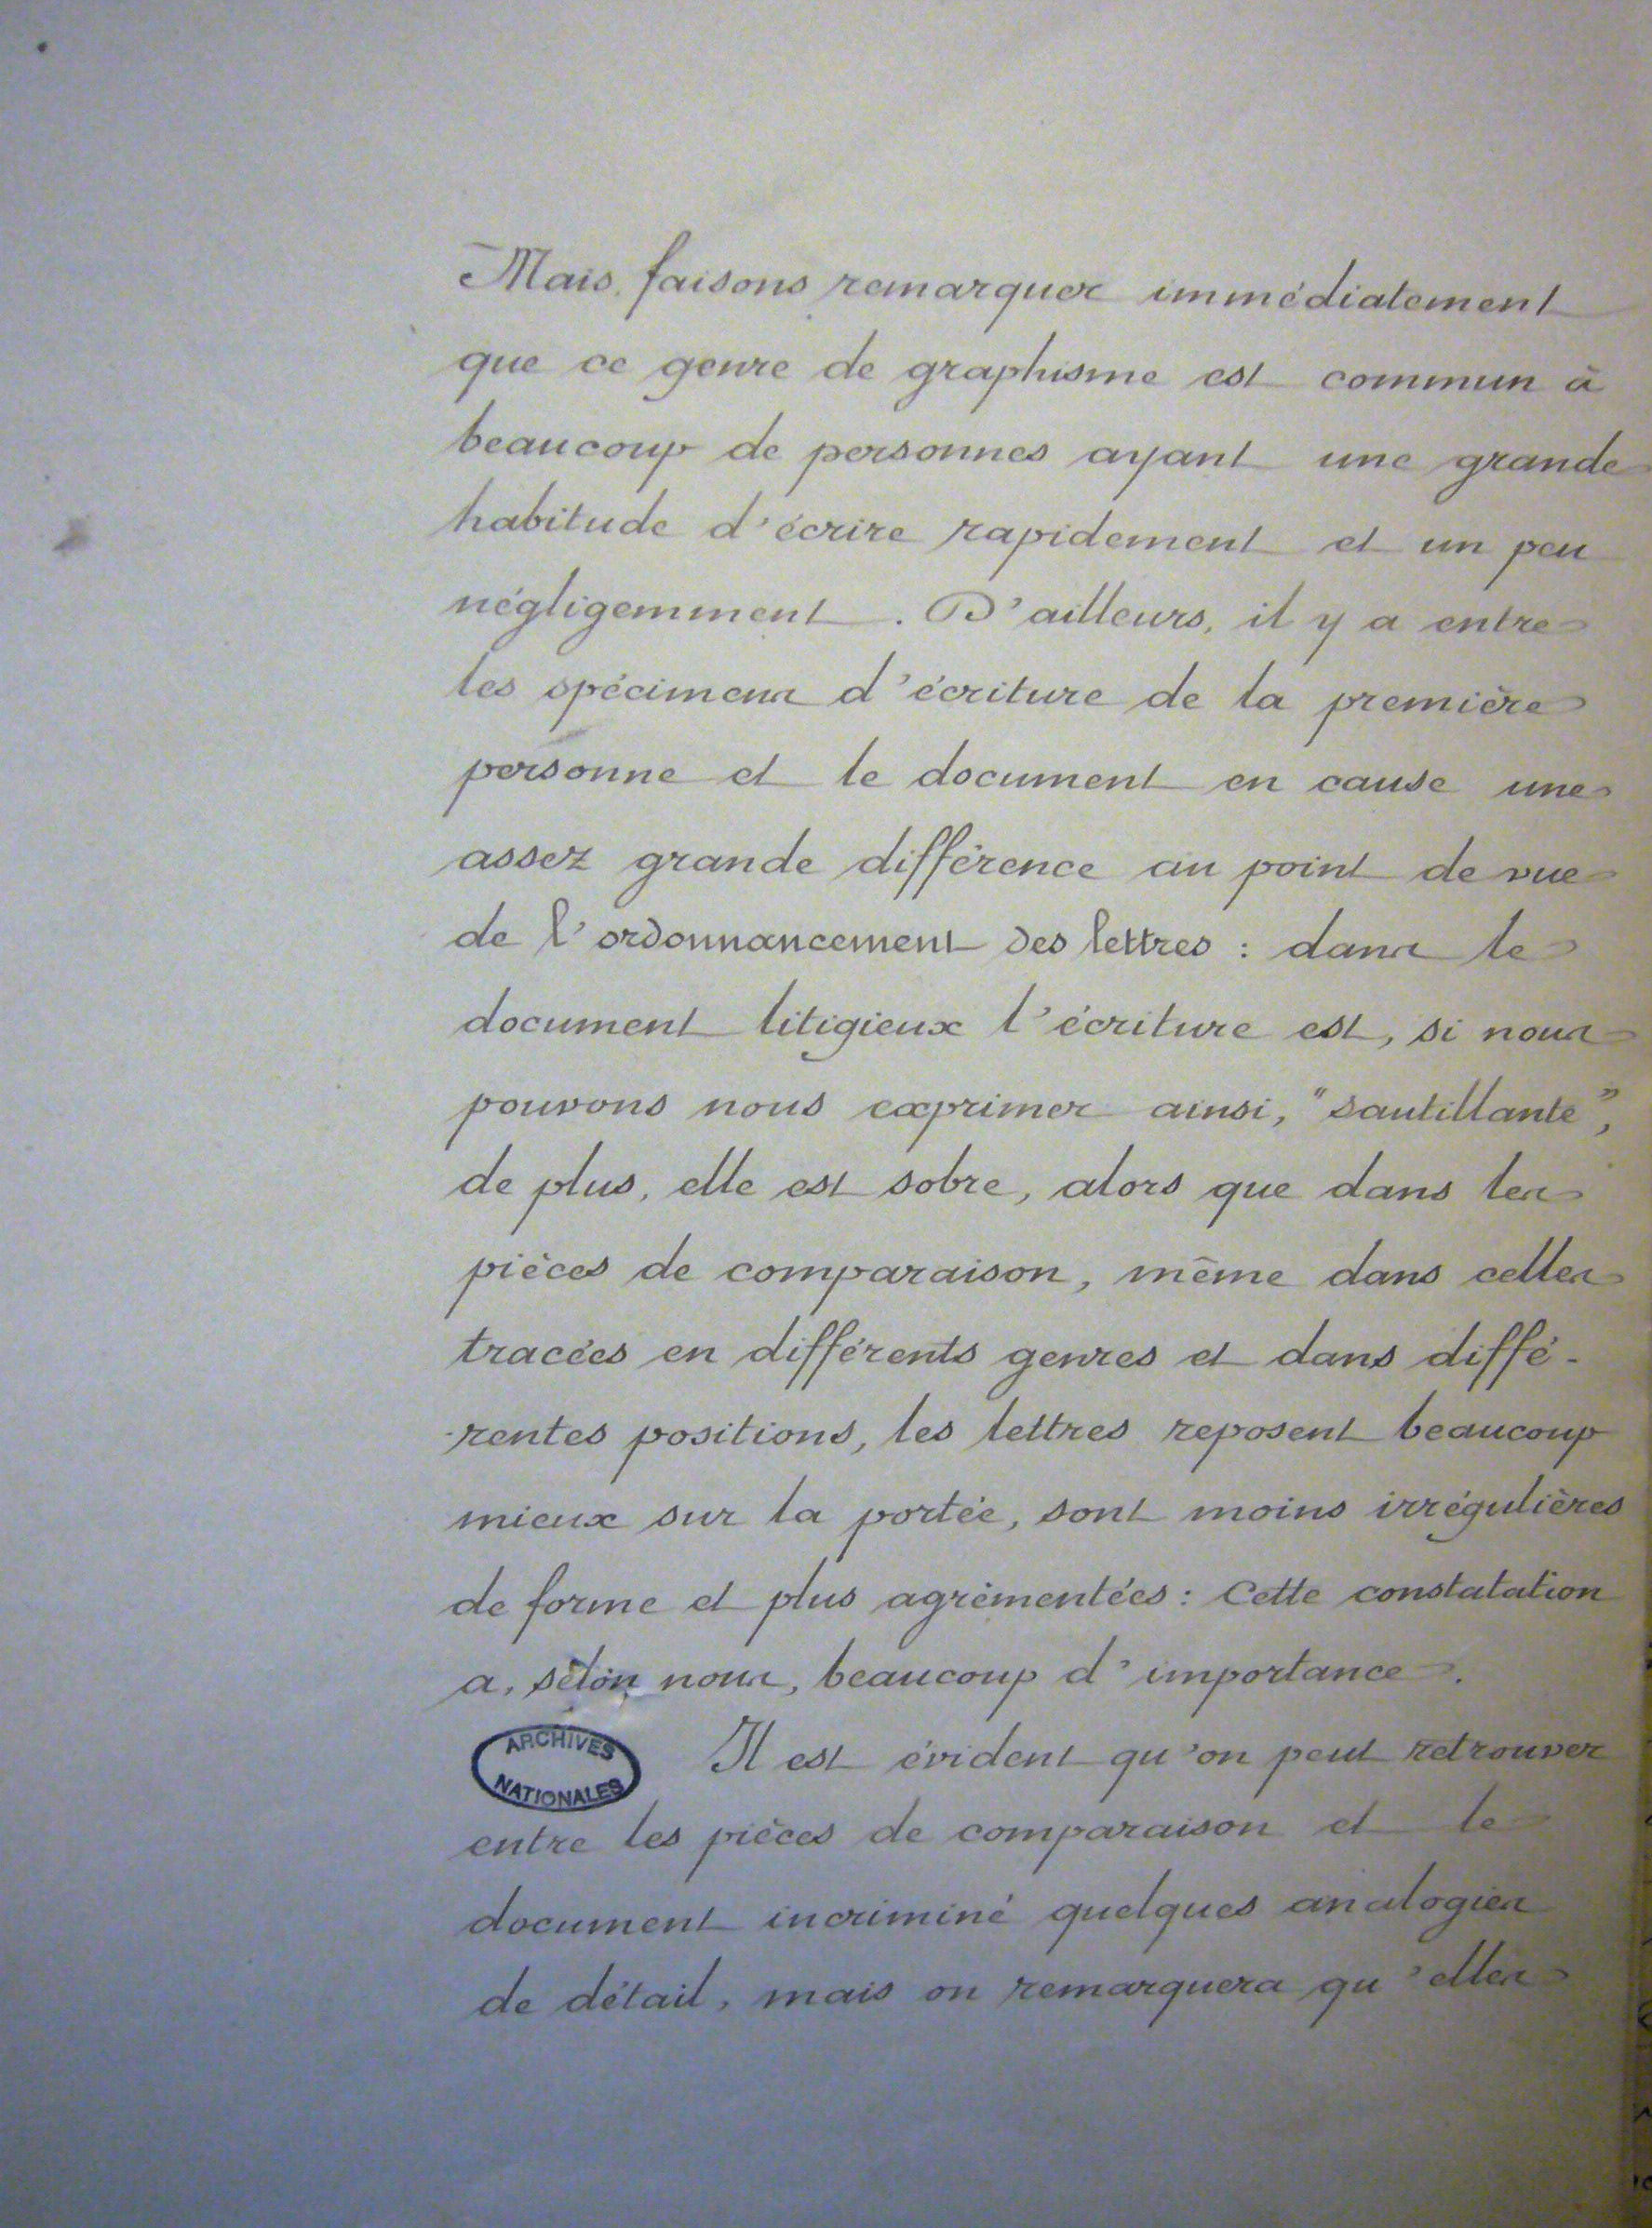 Mais faisons remarquer immédiatement
que ce genre de graphisme est commun à
beaucoup de personnes ayant une grande
habitude d'écrire rapidement et un peu
négligemment. D'ailleurs, il y a entre
les spécimens d'écriture de la première
personne et le document en cause une
assez grande différence au point de vue
de l'ordonnancement des lettres : dans le
document litigieux l'écriture est, si nous
pouvons nous exprimer ainsi, "sautillante",
de plus, elle est sobre, alors que dans les
pièces de comparaison, même dans celles
tracées en différents genres et dans diffé-
-rentes positions, les lettres reposent beaucoup
mieux sur la portée, sont moins irrégulières
de forme et plus agrémentées : Cette constatation
a, selon nous, beaucoup d'importance.
ARCHIVES
NATIONALES
Il est évident qu'on peut retrouver
entre les pièces de comparaison et le
document incriminé quelques analogies
de détail, mais on remarquera qu'elles